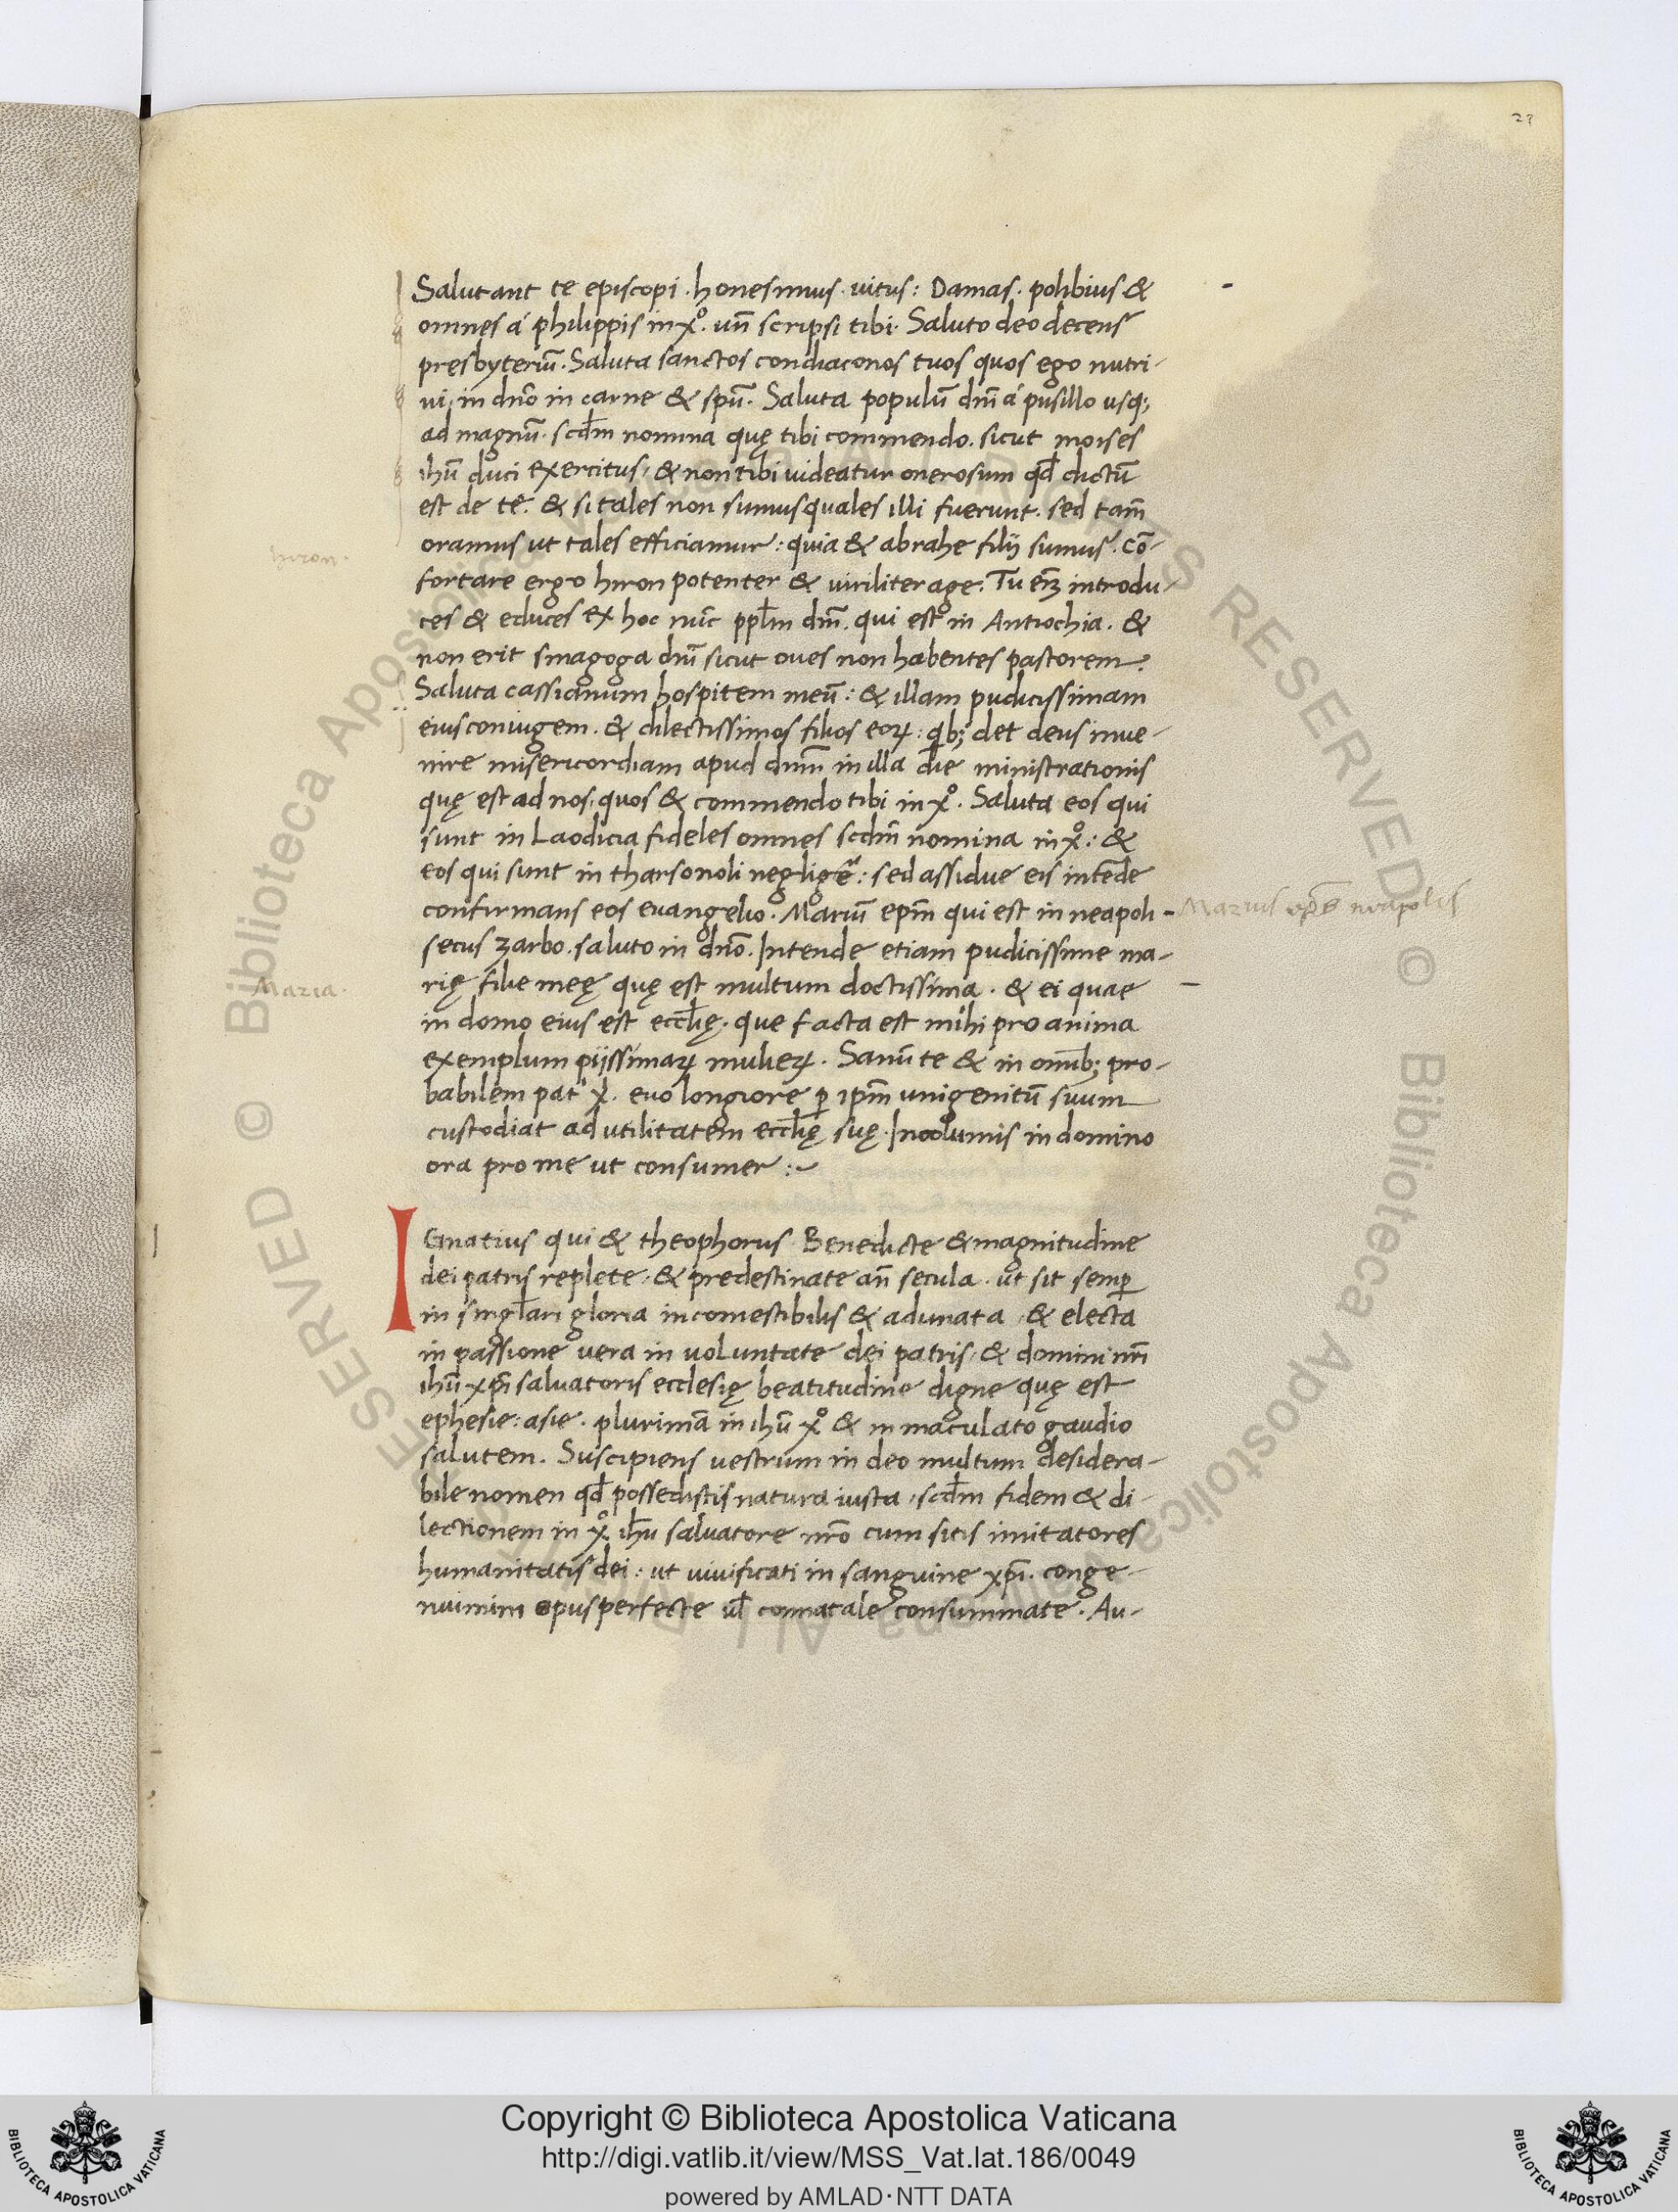 23
Salutant te episcopi. honesimus. vitus: Damas. polibius &
omnes á philippis in xº. un̄ scripsi tibi. Saluto deo decens
presbyteriū. Saluta sanctos condiaconos tuos quos ego nutri-
ui, in dn̄o in carne & spū. Saluta populū dn̄i á pusillo usq;
ad magnū. scd̄m nomina quę tibi commendo. sicut moises
ihū duci exercitus, & non tibi uideatur onerosum qd̄ dictū
est de te. & si tales non sumus quales illi fuerunt. sed tam̄
oramus ut tales efficiamur: quia & abrahe filij sumus. Cō-
hiron.
fortare ergo hiron potenter & uiriliter age. Tu en̄ introdu-
ces & educes ex hoc nūc ppl̄m dn̄i. qui est in Antiochia. &
non erit sinagoga dn̄i sicut oues non habentes pastorem.
Saluta cassianum hospitem meū: & illam pudicissimam
eius coniugem. & dilectissimos filios eoꝝ: qb; det deus inue-
nire misericordiam apud dnm̄ in illa die ministrationis
quę est ad nos, quos & commendo tibi in xº. Saluta eos qui
sunt in Laodicia fideles omnes scdm̄ nomina in xº: &
eos qui sunt in tharso noli negligē: sed assidue eis intēde
confirmans eos euangelio. Mariū epm̄ qui est in neapoli
Marius ep̄s neapolis
secus zarbo. saluto in dn̄o. Intende etiam pudicissime ma-
Maria.
rię filie meę quę est multum doctissima. & ei quae
in domo eius est eccl̄ię. que facta est mihi pro anima
exemplum pijssimaꝝ mulieꝝ. Sanū te & in omīb; pro-
babilem pat' xⁱ. euo longiore ꝑ ipm̄ unigenitū suum
custodiat ad utilitatem eccl̄ię suę. Incolumis in domino
ora pro me ut consumer:~
IGnatius qui & theophorus. Benedicte & magnitudine
dei patris replete, & predestinate an̄ secula. ut sit semꝑ
in singl̄ari gloria incomestibilis & adunata, & electa
in passione vera in uoluntate dei patris, & domini nr̄i
ihū xp̄i saluatoris ecclesię beatitudine digne quę est
ephesie: asie. plurimā in ihū xº & inmaculato gaudio
salutem. Suscipiens uestrum in deo multum desidera-
bile nomen qd̄ possedistis natura iusta, scd̄m fidem & di-
lectionem in xº ih̄u saluatore nr̄o cum sitis imitatores
humanitatis dei: ut uiuificati in sanguine xp̄i. conge-
nuinim opus perfecte ul̄ connatale consummate. Au-
Copyright © Biblioteca Apostolica Vaticana
http://digi.vatlib.it/view/MSS_Vat.lat.186/0049
powered by AMLAD·NTT DATA
BIBLIOTECA APOSTOLICA VATICANA
BIBLIOTECA APOSTOLICA VATICANA